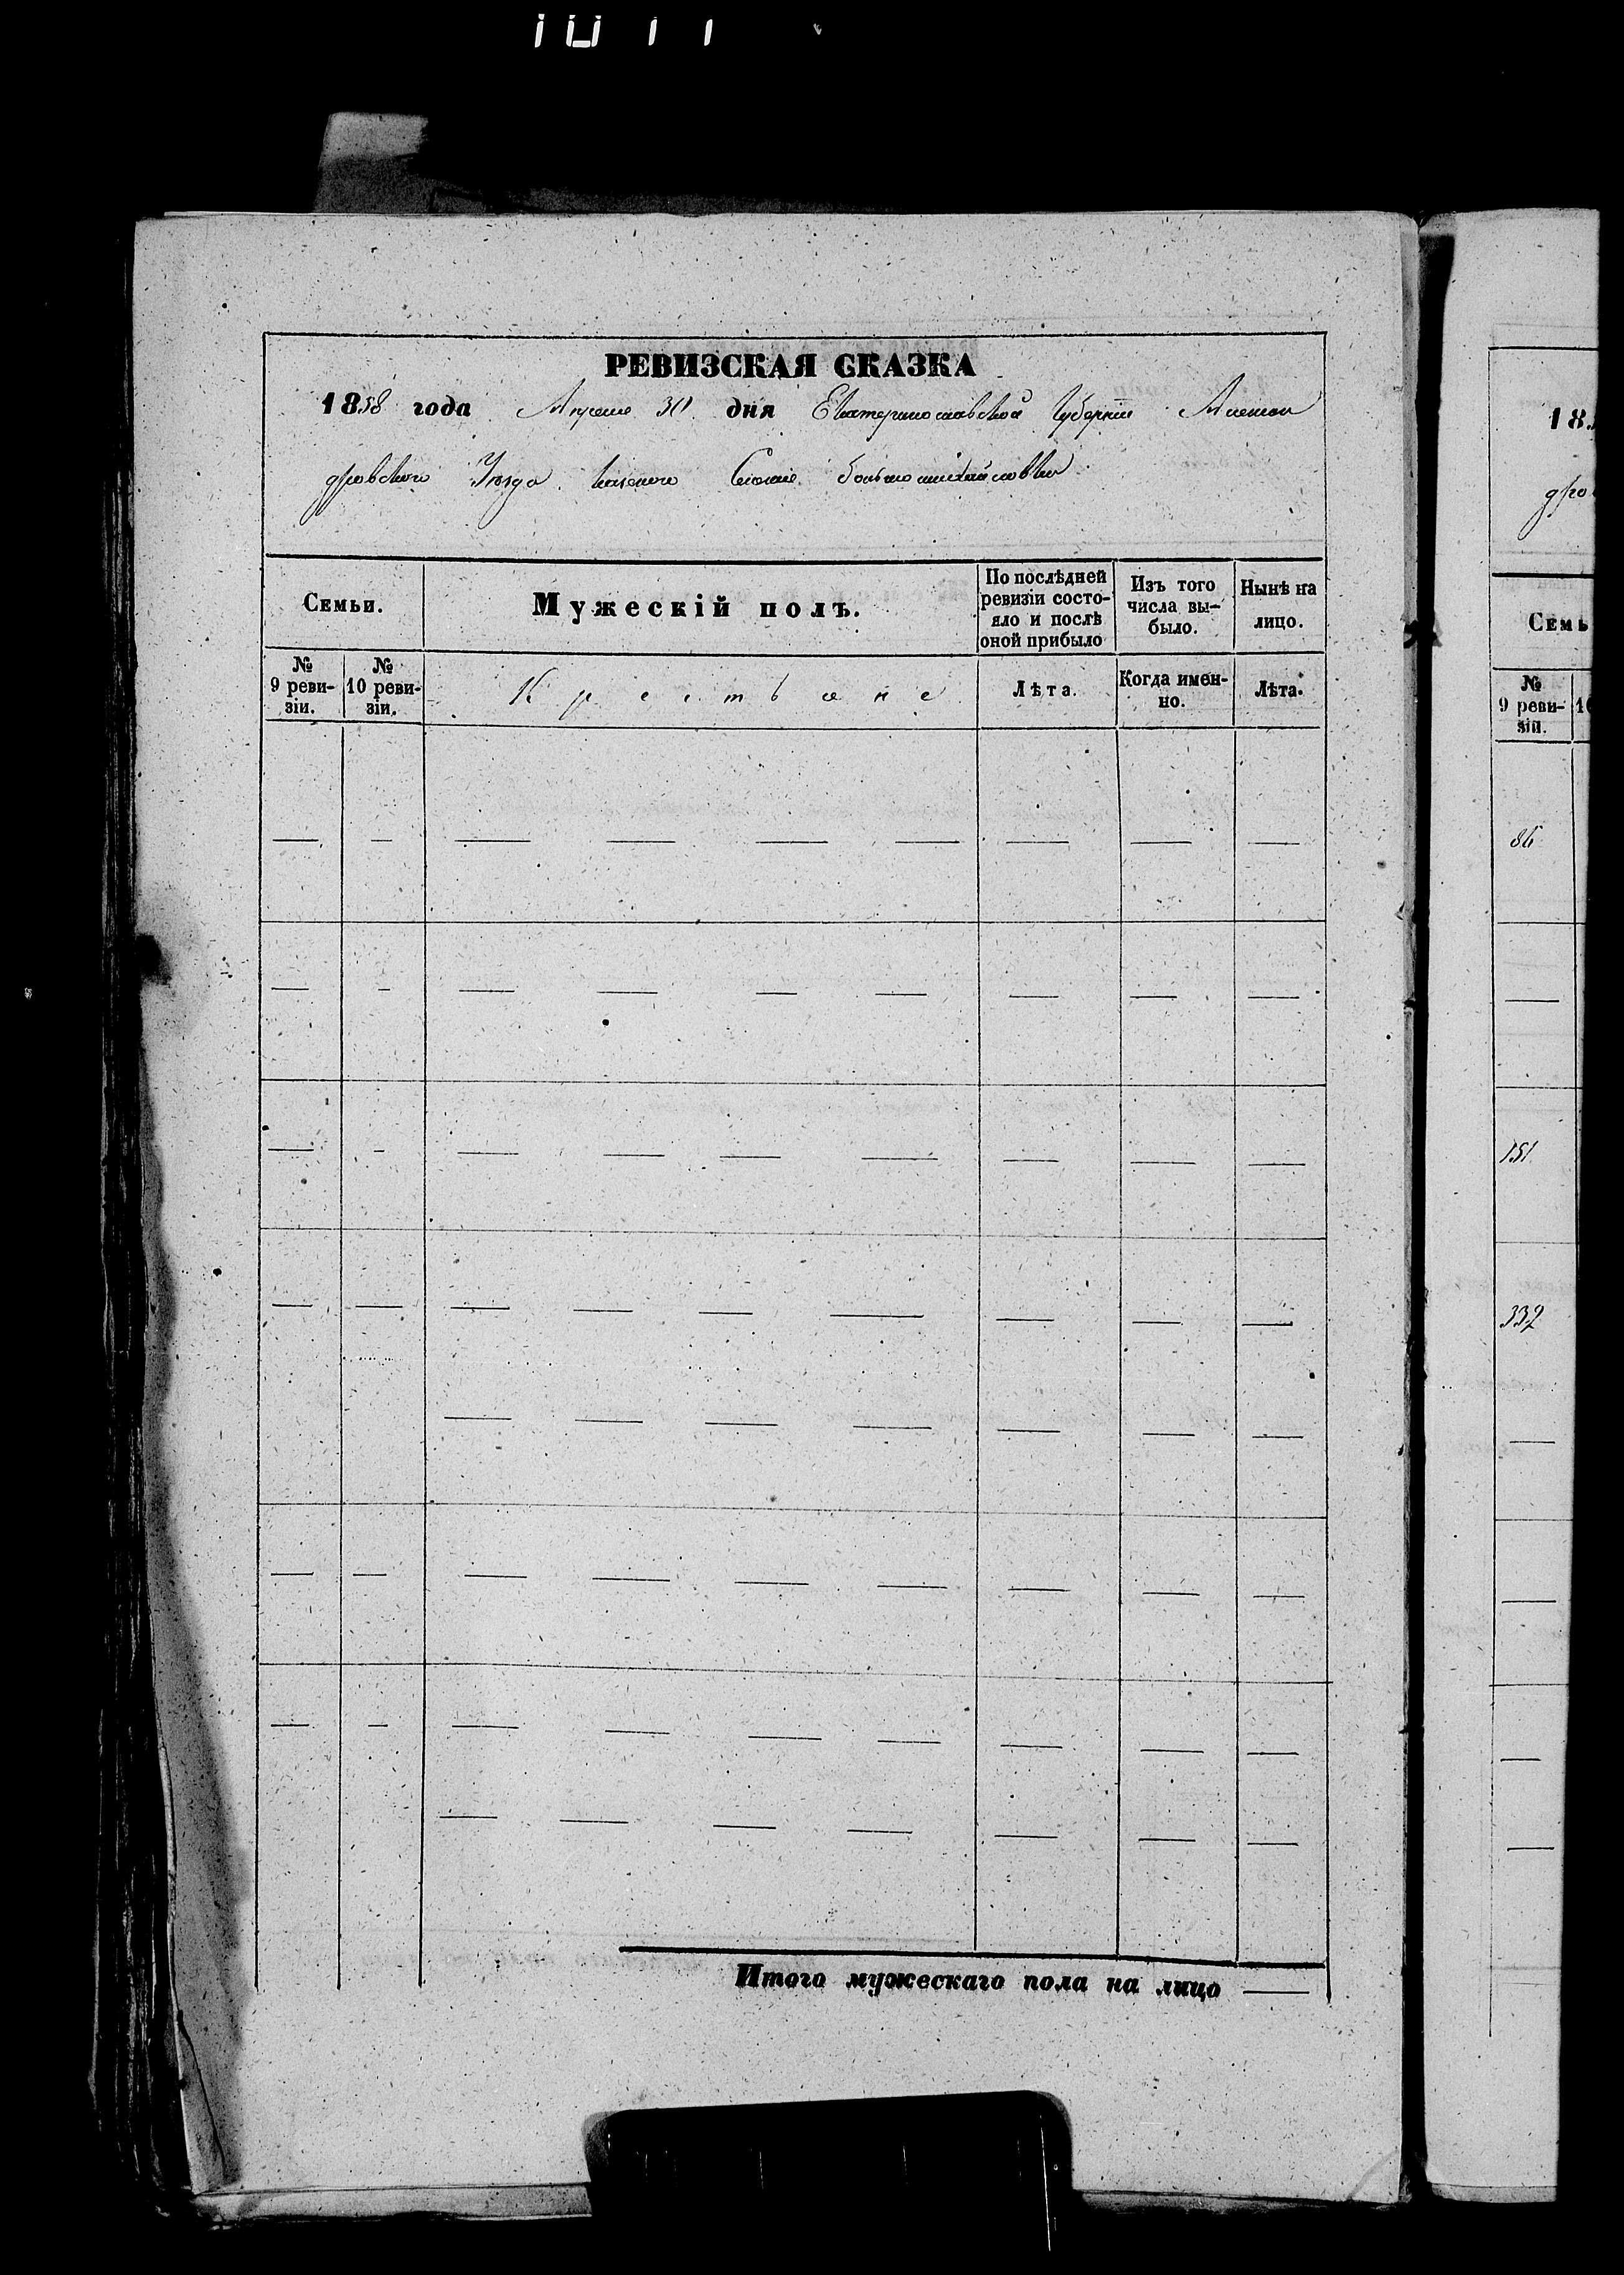 РЕВИЗСКАЯ СКАЗКА
1858 года Апреля 30 дня Екатеринославской Губерніи Алексан
дровского Уезда казеного Селенія Большемихайловки
Семьи.
Мужескій полъ.
По послѣдней
ревизіи состо-
яло и послѣ
оной прибыло
Изъ того
числа вы-
было.
Нынѣ на
лицо.
№
9 реви-
зіи.
№
10 реви-
зіи.
Крестьяне
Лѣта.
Когда имен-
но.
Лѣта.
— — — — — — — — —
— — — — — — — — —
— — — — — — — — —
— — — — — — — — —
— — — — — — —
— — — — — — — — —
— — — — — — — — —
— — — — — — —
Итого мужескаго пола на лицо —
18
дро
Семь
№
9 реви-
зіи.
86
—
151
332
—
—
—
—